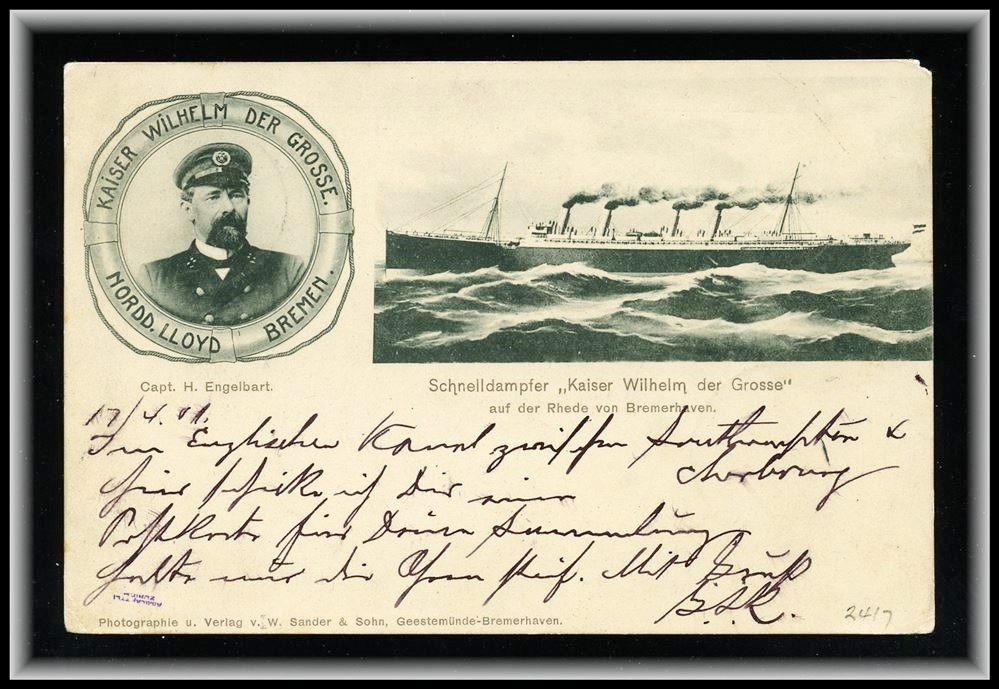 KAISER WILHELM DER GROSSE.
NORDD. LLOYD BREMEN.
Capt. H. Engelbart.
Schnelldampfer „Kaiser Wilhelm der Grosse"
auf der Rhede von Bremerhaven.
17/4.01.
Im Englischen Kanal zwischen Southampton &
Cherbourg
hier schicke ich Dir eine
Postkarte für Deine Sammlung
halte nur die Ohren steif. Mit Gruß
2417
Photographie u. Verlag v. W. Sander & Sohn, Geestemünde-Bremerhaven.